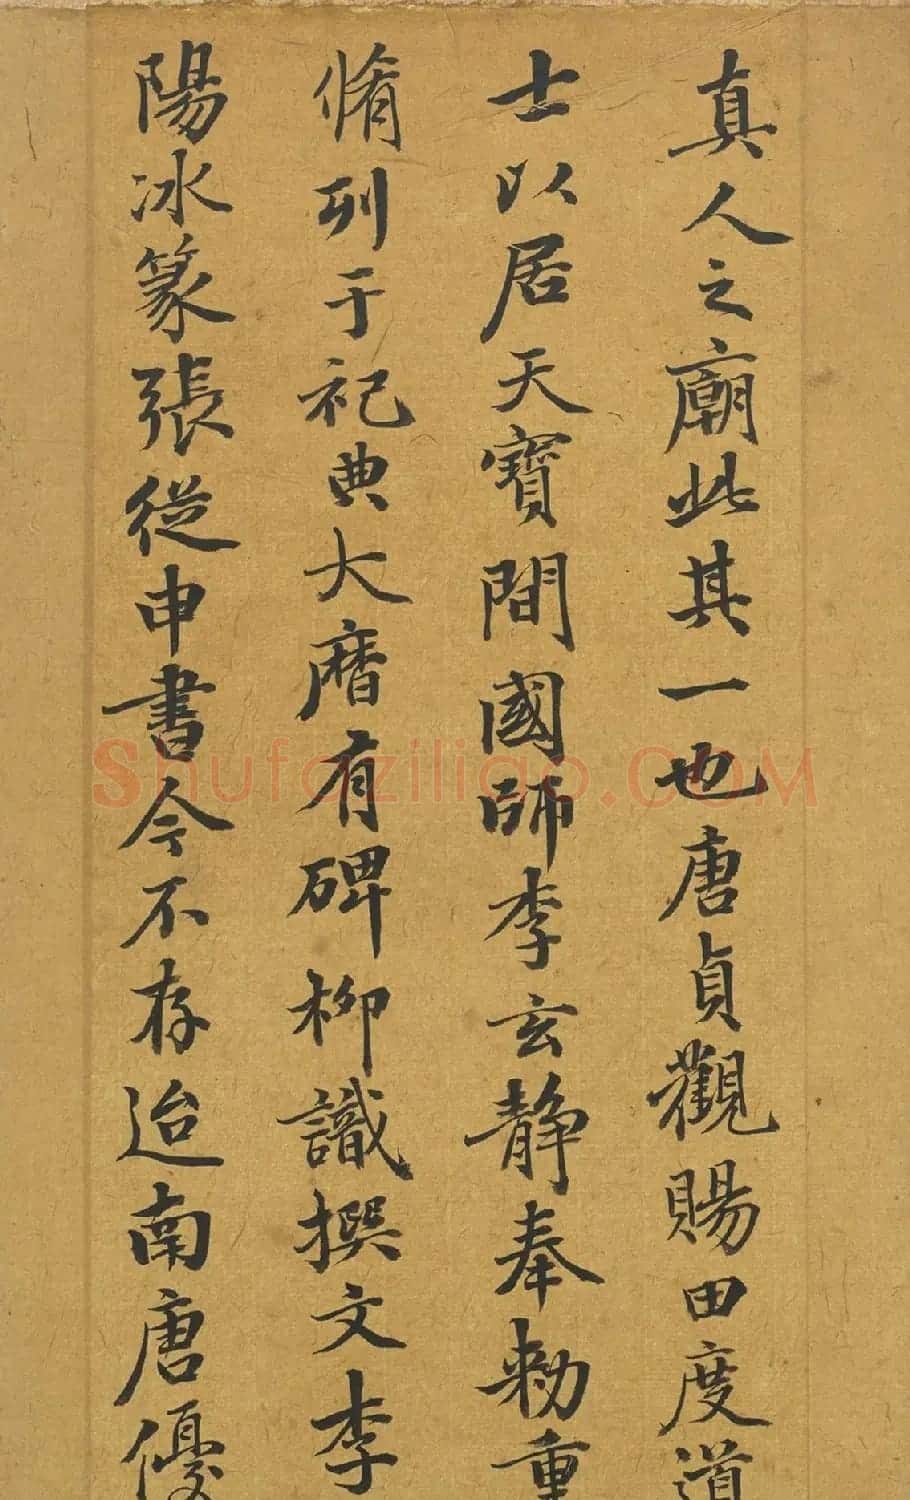 真人之廟此其一也唐貞觀賜田度道
士以居天寶間國師李玄静奉勑重
脩列于祀典大曆有碑柳識撰文李
陽冰篆張從申書今不存迨南唐優
Shufaziliao.COM